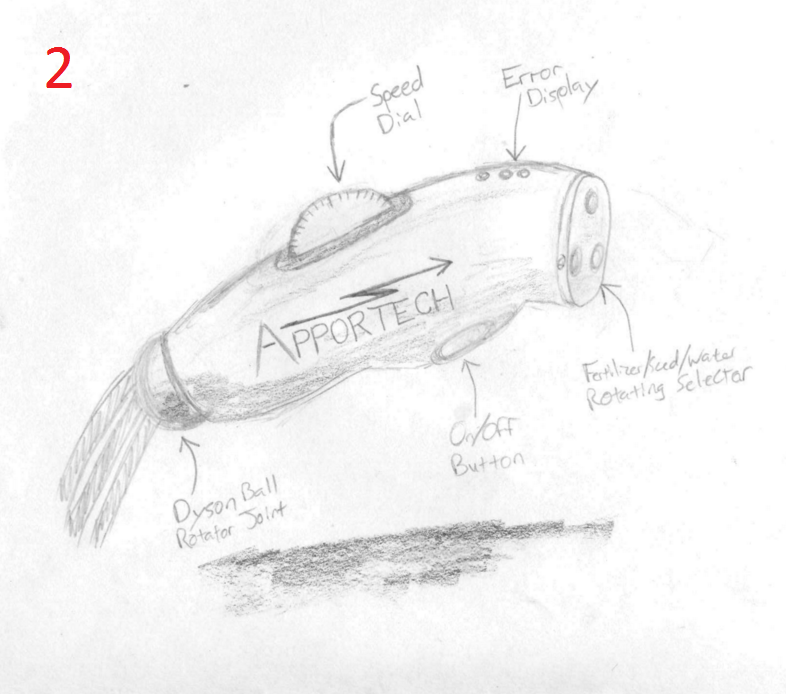 2
Speed
Dial
Error
Display
APPORTECH
Fertilizer/Seed/Water
Rotating Selector
On/Off
Button
Dyson Ball
Rotator Joint